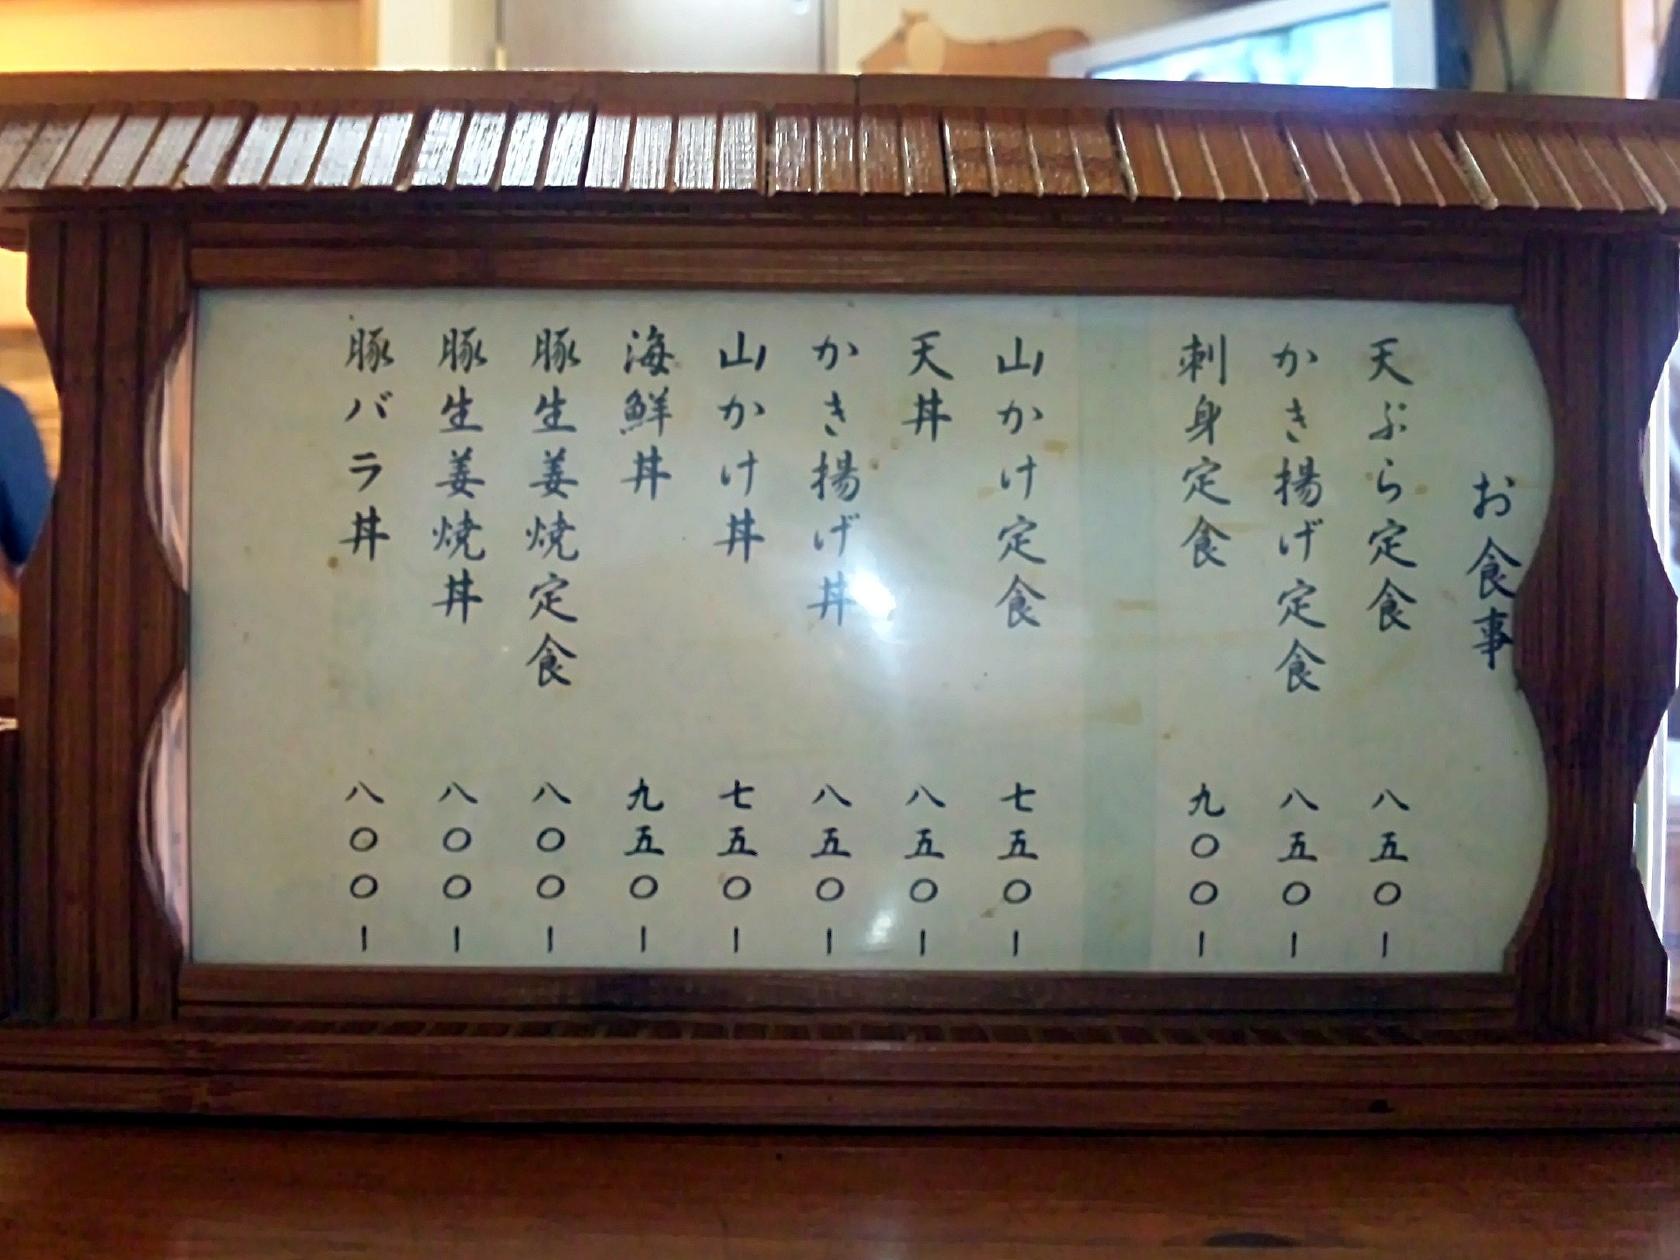 お食事
天ぷら定食 八五〇ー
かき揚げ定食 八五〇ー
刺身定食 九〇〇ー
山かけ定食 七五〇ー
天丼 八五〇ー
かき揚げ丼 八五〇ー
山かけ丼 七五〇ー
海鮮丼 九五〇ー
豚生姜焼定食 八〇〇ー
豚生姜焼丼 八〇〇ー
豚バラ丼 八〇〇ー